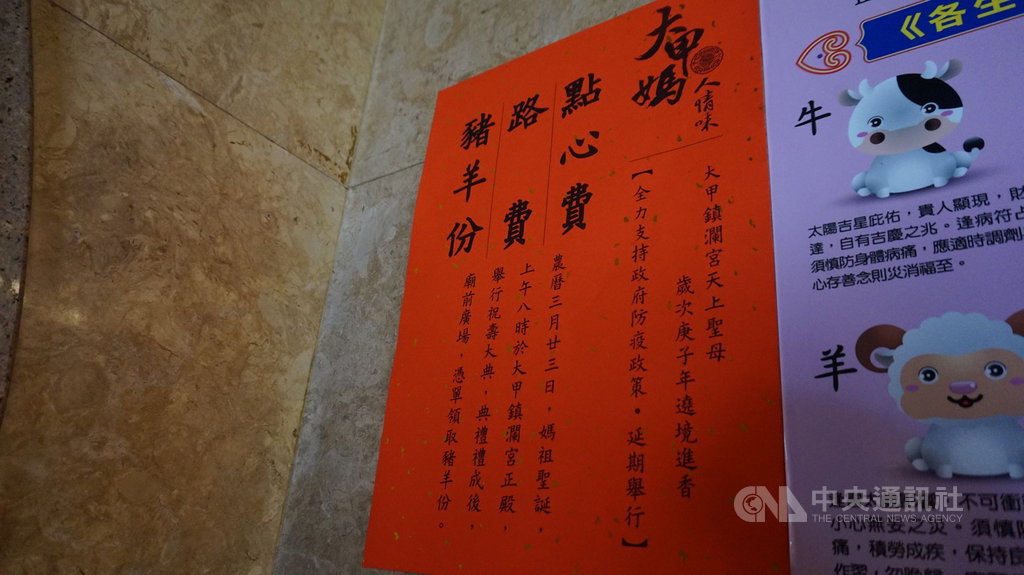 大甲媽
人情味
大甲鎮瀾宮天上聖母
歲次庚子年遶境進香
【全力支持政府防疫政策。延期舉行】
點心費
路費
豬羊份
農曆三月廿三日，媽祖聖誕，
上午八時於大甲鎮瀾宮正殿，
舉行祝壽大典，典禮禮成後，
廟前廣場，憑單領取豬羊份。
《各生
牛
太陽吉星庇佑，貴人顯現，財
達，自有吉慶之兆。逢病符占
須慎防身體病痛，應適時調劑
心存善念則災消福至。
羊
不可衝
小心無妄之災。須慎防
痛，積勞成疾，保持良
中央通訊社
THE CENTRAL NEWS AGENCY